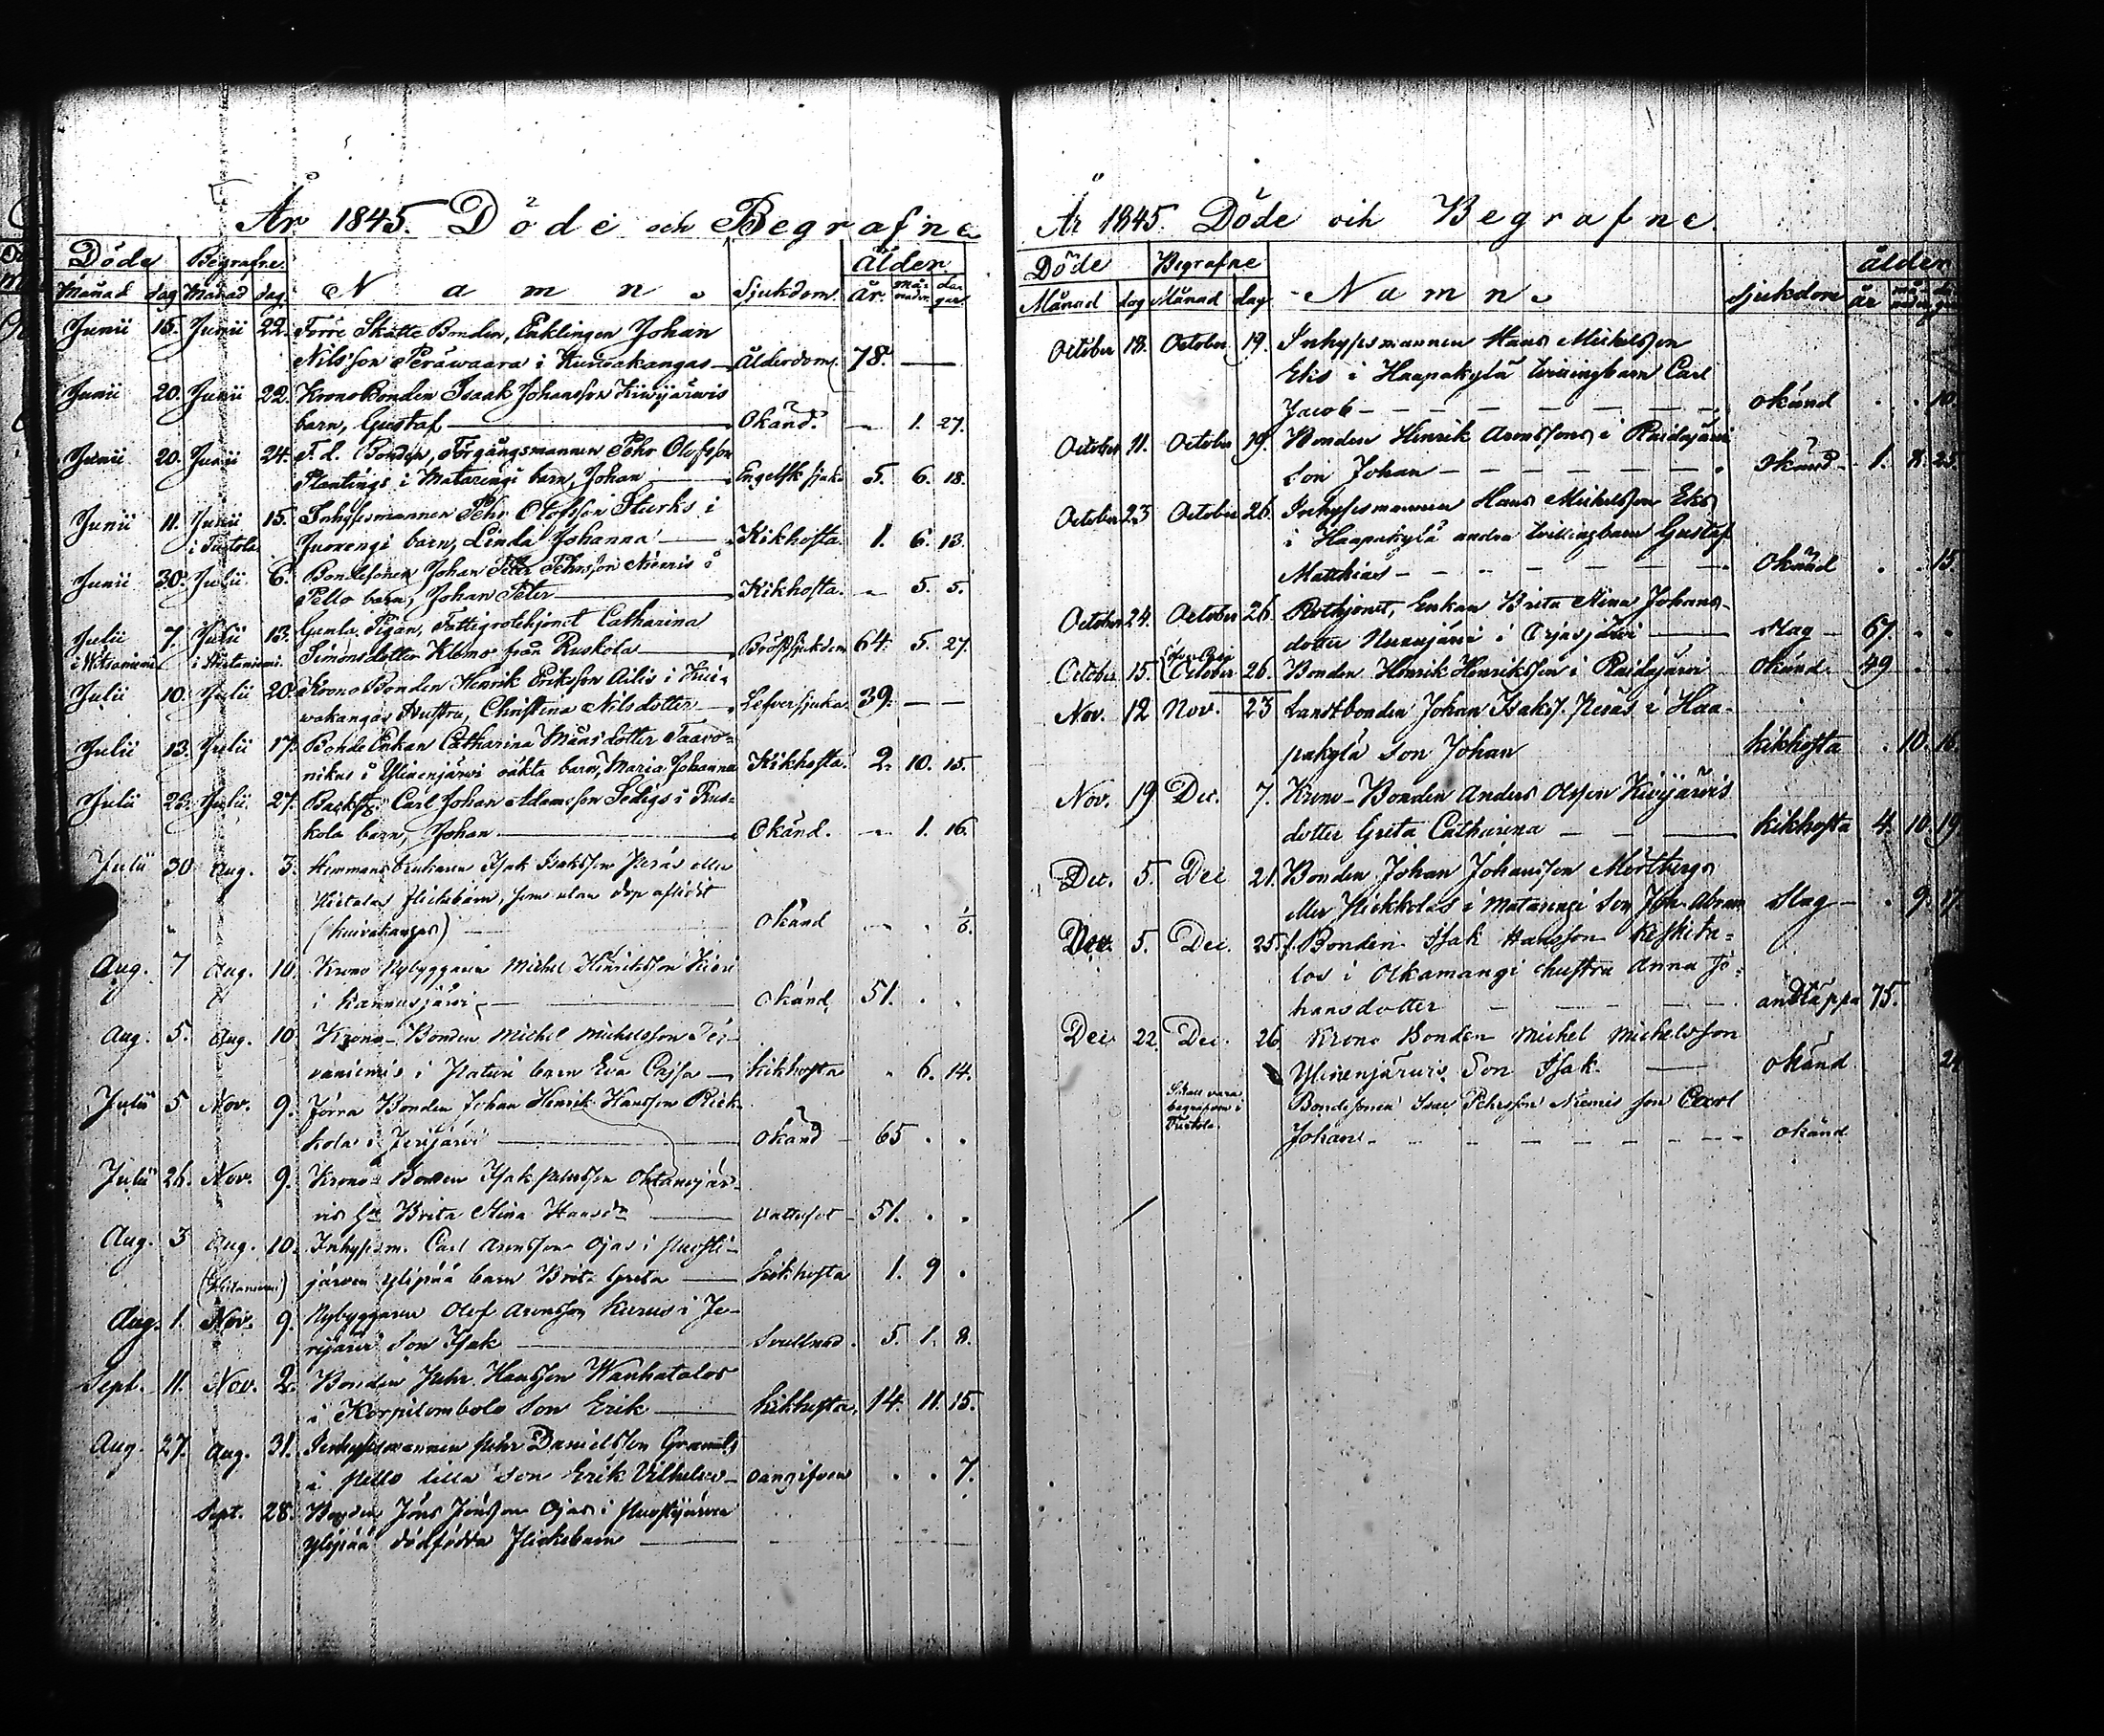 År 1845. Döde och Begrafne
Döde Begrafne Ålder.
Månad dag Månad dag. Namn. Sjukdom. År. Må-nader. da-gar
Junii 15. Junii 22. Förre Skatte Bonden, Enklingen Johan
Nilsson Peräwaara i Kuiwakangas Ålderdom. 78. — —
Junii 20. Junii 22. Krono Bonden Isaak Johansson Kiwijärwis
barn, Gustaf Okänd. — 1. 27.
Junii 20. Junii 24. F. d. Bonden, Förgångsmannen Pehr Olofsson
Plantings i Matarengi barn, Johan Engelsk sjuka 5. 6. 18.
Junii 11. Junii 15. Inhysesmannen Pehr Olofsson Sturks i
i Turtola Juoxengi barn, Linda Johanna Kikhosta. 1. 6. 13.
Junii 30. Julii 6. Bondesonen Johan Peter Pehrsson Niemis i
Pello barn, Johan Peter Kikhosta. — 5. 5.
Julii 7. Julii 13. Gamla Pigan, Fattigrotehjonet Catharina
i Hietaniemi i Hietaniemi. Simonsdotter Klemo från Ruskola Bröstsjukdom 64. 5. 27.
Julii 10. Julii 20. Krono Bonden Henrik Eriksson Ailis i Kui-
wakangas Hustru, Christina Nilsdotter Lefversjuka 39. — —
Julii 13. Julii 17. Bonde Enkan Catharina Månsdotter Taavo-
nikus i Ylinenjärwi oäkta barn, Maria Johanna Kikhosta. 2. 10. 15.
Julii 22. Julii 27. Backst. Carl Johan Adamsson Sedigs i Rus-
kola barn, Johan Okänd. — 1. 16.
Julii 30 Aug. 3. Hemmansbrukaren Isak Isaksson Peräs eller
Hietala flickebarn, som utan dop aflidit
(Kuivakangas) okänd — . 1/6.
Aug. 7 Aug. 10. Krono Nybyggaren Michel Henriksson Kieri
i Kannusjärvi okänd 51. . .
Aug. 5. Aug. 10 Krono-Bonden Michel Michelsson Per-
vaniemis i barn Eva Cajsa kikhosta . 6. 14.
Julii 5 Nov. 9. Förra Bonden Johan Henrik Hansson Rick-
kola i Jerijärvi okänd 65 . .
Julii 26. Nov. 9. Krono-Bonden Isak Ohtanajär-
vis Brita Stina Hansdr vattusot 51. . .
Aug. 3 Aug. 10. Inhysesm. Carl Aronsson Ojas i Puosti-
(Hietaniemi) järven ylipää barn Brita Greta kikhosta 1. 9 .
Aug. 1. Nov. 9. Nybyggaren Olof Aronsson Kurus i Je-
rijärvi son Isak Svullnad. 5. 1. 8.
Sept. 11. Nov. 2. Bonden Pehr Hansson Wanhatalos
i Korpilombolo son Erik kikhosta. 14. 11. 15.
Aug. 27. Aug. 31. Inhysesmannen Pehr Danielsson
i Pello lilla son Erik Vilhelm oangifven . . 7.
Sept. 28. Bonden Jöns Jönsson Ojas i Puostijärven
ylipää dödfödda flickebarn
År 1845. Döde och Begrafne.
Döde Begrafne ålder
Månad dag Månad dag Namn. sjukdom år
October 18. October 19. Inhysesmannen Hans Michelsson
Eks i Haapakylä tvillingbarn Carl
Jacob okänd . . 10.
October 11. October 19. Bonden Henrik Aronssons i Raidejärvi
son Johan okänd 1. 8. 25.
October 23 October 26. Inhysesmannen Hans Michelsson Eks
i Haapakylä andra tvillingbarn Gustaf
Matthias okänd . . 15.
October 24. October 26. Rothjonet, Enkan Brita Stina Johans-
dotter i slag 67. . .
October 15. October 26. Bonden Henrik Henriksson i Raidejärvi okänd. 49 . .
Nov. 12 Nov. 23 Landtbonden Johan Isaks. Peräs i Haa-
pakylä son Johan kikhosta . 10. 16.
Nov. 19 Dec. 7. Krono-Bonden Anders Olsson Kivijärvis
dotter Greta Catharina kikhosta 4. 10. 19
Dec. 5. Dec 21. Bonden Johan Johansson Mörtbergs
eller Hickkolas i Matarengi son Joh. Abram slag . 9. 17.
Dec. 5. Dec. 25. f. Bonden Isak Hansson Keskita-
los i Olkamangi hustru Anna Jo-
hansdotter andtäppa 75.
Dec. 22. Dec. 26. Krono Bonden Michel Michelsson
Ylinenjärvis Son Isak okänd 24
Skall vara begrafven i Turtola. Bondesonen Isac Pehrsson Niemis son Carl
Johan okänd